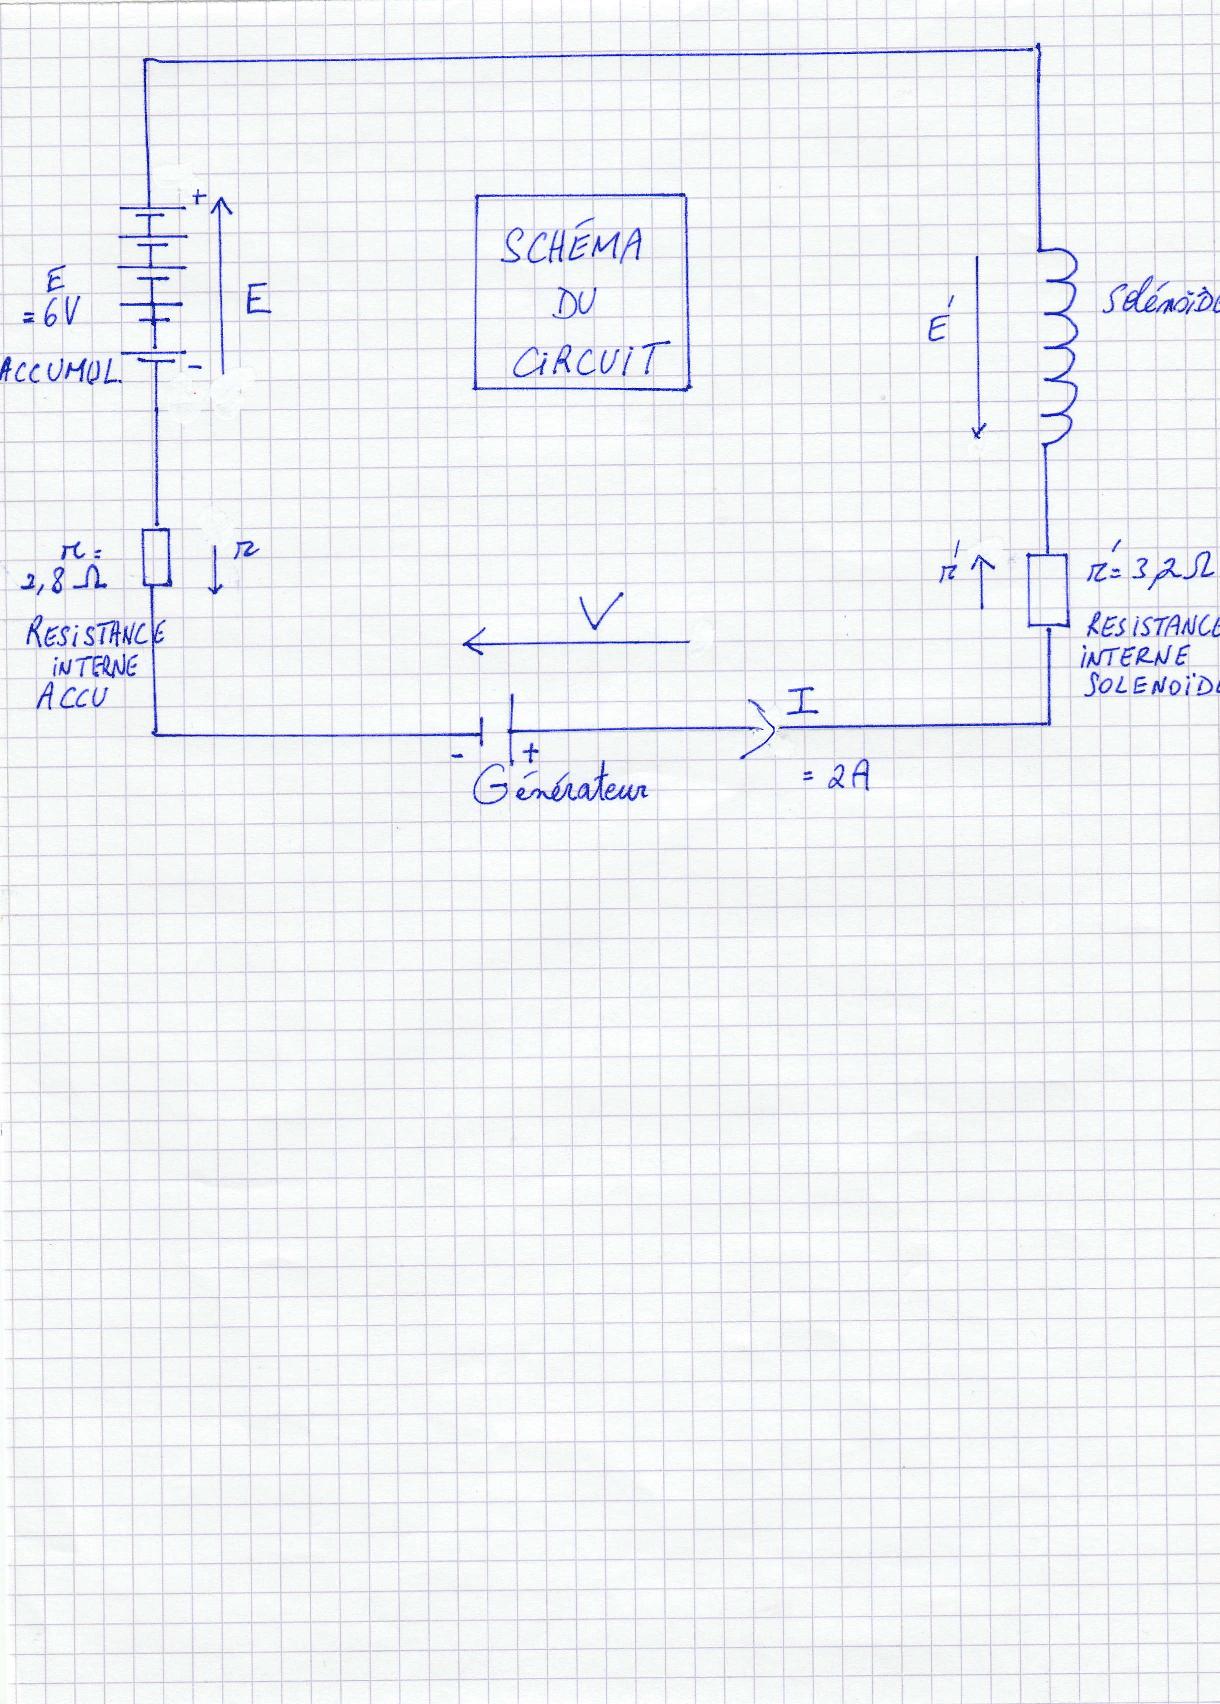 SCHÉMA
DU
CiRCUiT
+
E
= 6V
E
ACCUMUL.
-
E'
Solénoïde
r =
2,8 Ω
r
RESiSTANCE
iNTERNE
ACCU
V
r'
r' = 3,2 Ω
RESiSTANCE
iNTERNE
SOLENOÏDE
I
= 2A
- +
Générateur